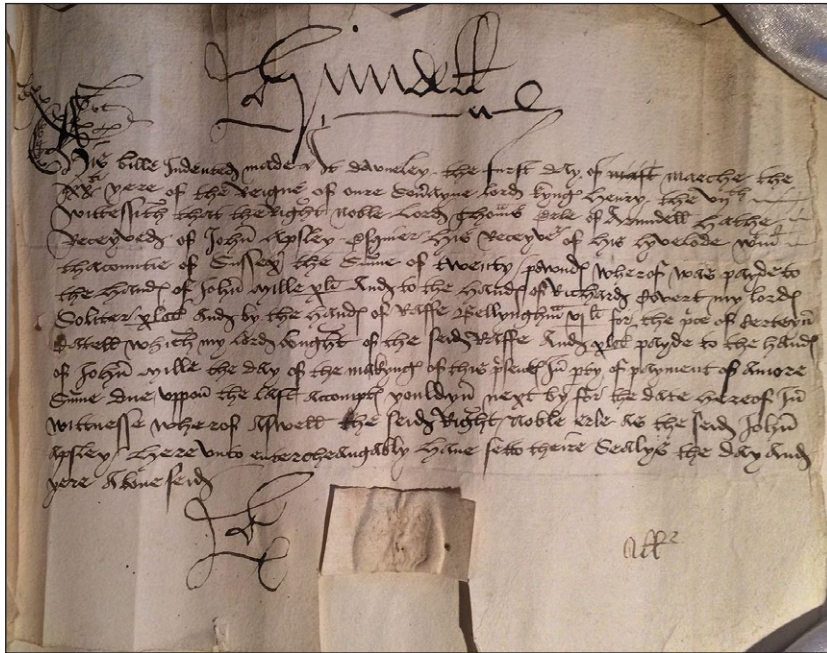 Arundell
This bille Indented made At dauneley the furst day of marche the
xxth yere of the Reigne of oure Soverayne lord kyng Henry the vijth
Wittessith that the Right noble lord Thomas Erle of Arundell hathe
Receyved of John Apsley Esquier his Receyver of his lyvelode within
thacountie of Sussex the Summe of twenty powndes wherof was payde to
the handes of John Mille xls And to the handes of Richard Covert my lordes
Soliter And by the handes of Raffe Bellyngham for the price of Certeyn
Catell which my lord bought of the seid Raffe And payde to the handes
of John Mille the day of the makyng of this presentes In party of payment of Amore
Summe due uppon the last Accompt yoldyn next by for the date hereof In
wittnesse wherof Aswell the seid Right noble erle As the seid John
Apsley here unto entercheangably have setto theire Sealys the day And
yere Above seid